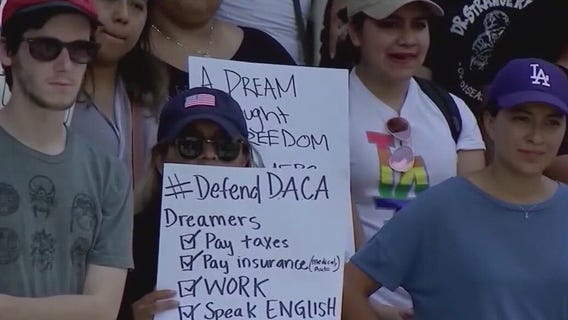 DR. STRANGE
LA
A DREAM
FREEDOM
LA
#Defend DACA
Dreamers
☑ Pay taxes
☑ Pay insurance (medical, Auto)
☑ WORK
☑ Speak ENGLISH